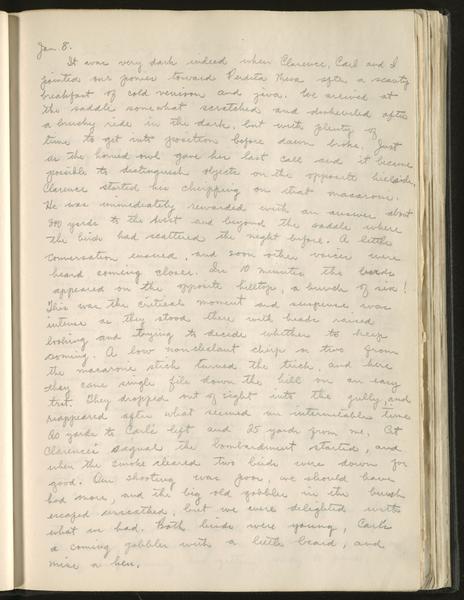 Jan. 8.
It was very dark indeed when Clarence, Carl and I
pointed our ponies toward Perdita Mesa after a scanty
breakfast of cold venison and java. We arrived at
the saddle somewhat scratched and disheveled after
a brushy ride in the dark, but with plenty of
time to get into position before dawn broke. Just
as the horned owl gave her last call and it became
possible to distinguish objects on the opposite hillside,
Clarence started his chirpping on that macarone.
He was immediately rewarded with an answer about
200 yards to the West and beyond the saddle where
the birds had scattered the night before. A little
conversation ensued, and soon other voices were
heard coming closer. In 10 minutes the birds
appeared on the opposite hilltop, a bunch of six!
This was the critical moment and suspense was
intense as they stood there with heads raised
looking and trying to decide whether to keep
coming. A low nonchalant chirp or two from
the macarone stick turned the trick, and here
they came single file down the hill on an easy
trot. They dropped out of sight into the gully, and
reappeared after what seemed an interminable time
20 yards to Carl's left and 25 yards from me. At
Clarence's signal the bombardment started, and
when the smoke cleared two birds were down for
good. Our shooting was poor, we should have
had more, and the big old gobbler in the bunch
escaped unscathed, but we were delighted with
what we had. Both birds were young, Carl's
a coming gobbler with a little beard, and
mine a hen.